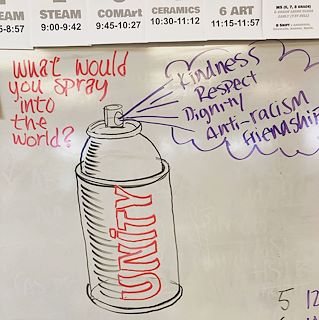 EAM
-8:57
2
STEAM
9:00-9:42
COMArt
9:45-10:27
CERAMICS
10:30-11:12
6 ART
11:15-11:57
MS (6, 7, 8 GRADE)
What would
you spray
into
the
world?
Kindness
Respect
Dignity
Anti-racism
friendship
UNITY
5 12